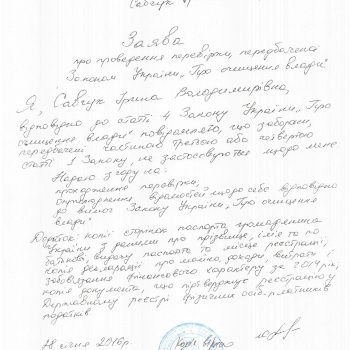 Савчук
Заява
про проведення перевірки, передбачена
Законом України „Про очищення влади"
Я, Савчук Ірина Володимирівна,
відповідно до статті 4 Закону України „Про
очищення влади" повідомляю, що заборони,
передбачені частиною третьою або четвертою
статті 1 Закону, не застосовуються щодо мене.
Надаю згоду на:
проходження перевірки;
оприлюднення відомостей щодо себе відповідно
до вимог Закону України „Про очищення
влади"
Додаток: копії сторінок паспорта громадянина
України з даними про прізвище, ім'я та по
батькові, видачу паспорта та місце реєстрації,
копія декларації про майно, доходи, витрати і
зобов'язання фінансового характеру за 2014 рік;
копія документа, що підтверджує реєстрацію у
Державному реєстрі фізичних осіб-платників
податків
18 січня 2016р.